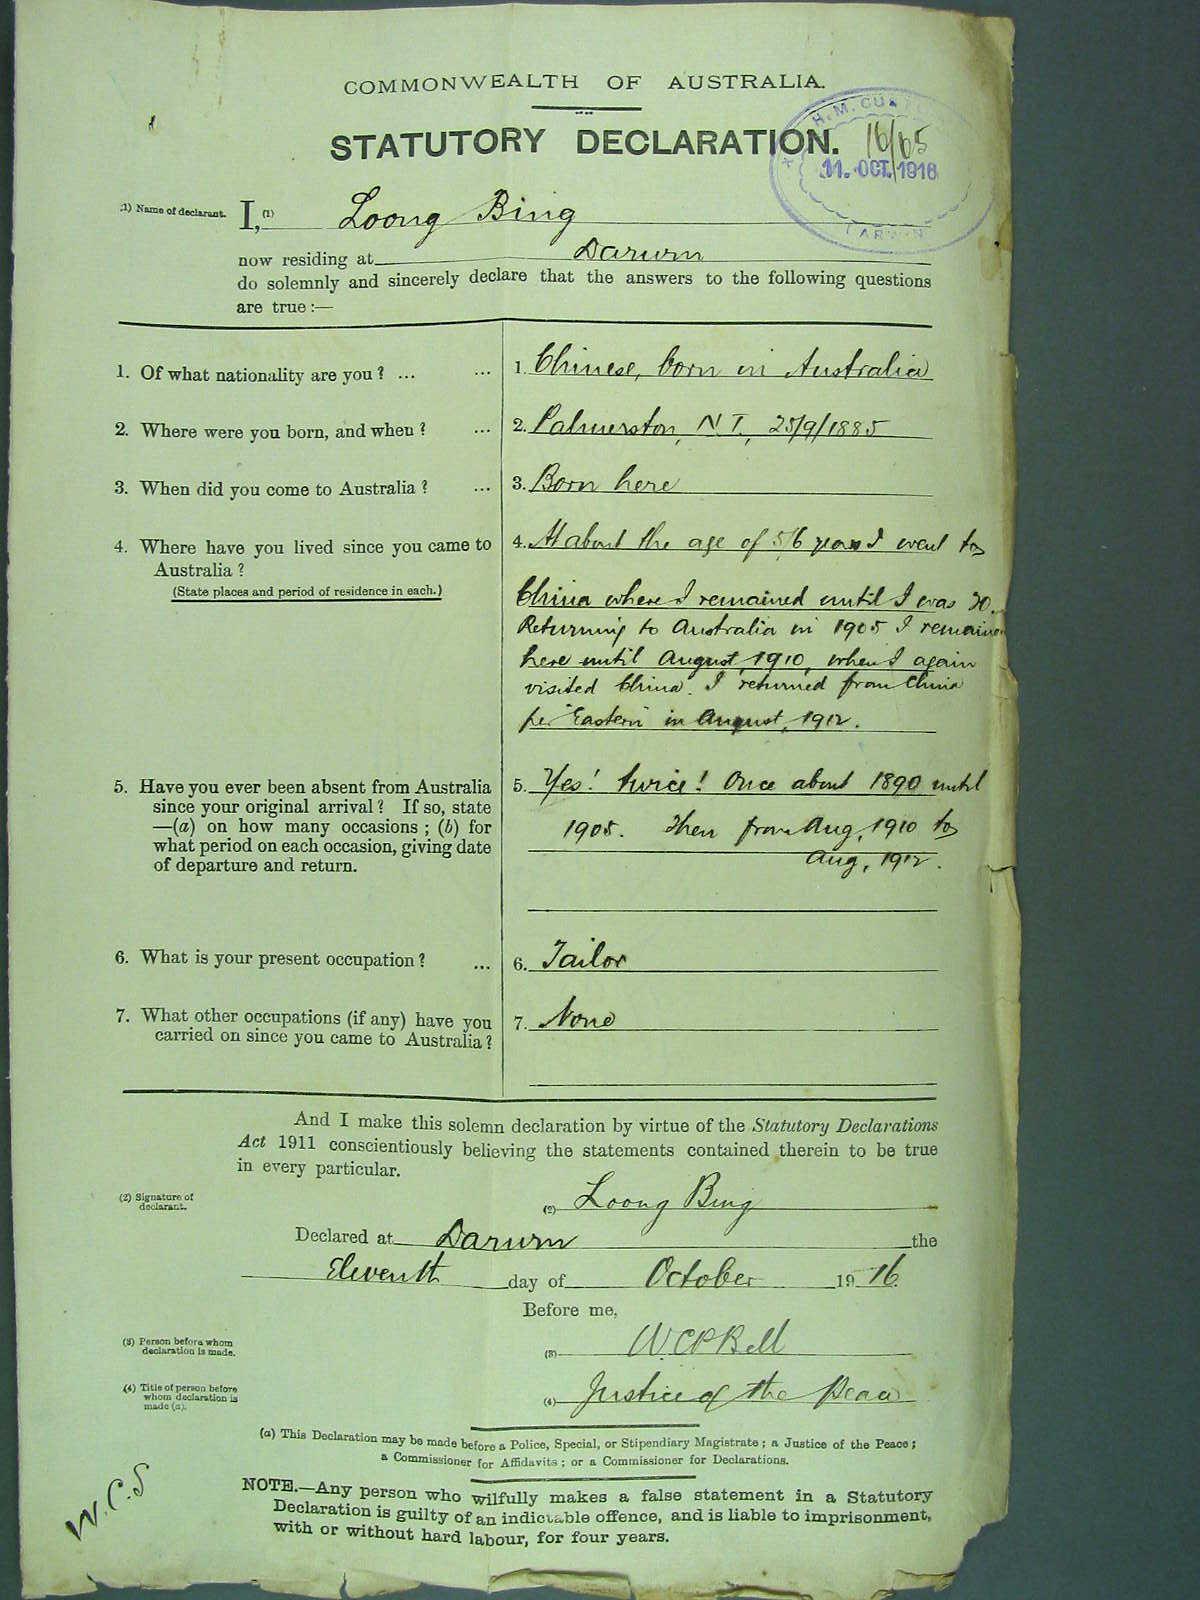 COMMONWEALTH OF AUSTRALIA.
STATUTORY DECLARATION.
H.M. CUSTOMS
16/65
11. OCT. 1916
DARWIN
(1) Name of declarant. I, (1) Loong Bing
now residing at Darwin
do solemnly and sincerely declare that the answers to the following questions
are true:—
1. Of what nationality are you? ... ... 1. Chinese, born in Australia
2. Where were you born, and when? ... 2. Palmerston, N.T., 25/9/1885
3. When did you come to Australia? ... 3. Born here
4. Where have you lived since you came to
Australia?
(State places and period of residence in each.)
4. At about the age of 5/6 years I went to
China where I remained until I was 20.
Returning to Australia in 1905 I remained
here until August, 1910, when I again
visited China. I returned from China
per "Eastern" in August, 1912.
5. Have you ever been absent from Australia
since your original arrival? If so, state
—(a) on how many occasions; (b) for
what period on each occasion, giving date
of departure and return.
5. Yes! twice! Once about 1890 until
1905. Then from Aug, 1910 to
Aug, 1912.
6. What is your present occupation? ... 6. Tailor
7. What other occupations (if any) have you
carried on since you came to Australia?
7. None
And I make this solemn declaration by virtue of the Statutory Declarations
Act 1911 conscientiously believing the statements contained therein to be true
in every particular.
(2) Signature of
declarant.
(2) Loong Bing
Declared at Darwin the
Eleventh day of October 1916
Before me,
(3) Person before whom
declaration is made.
(3) W.C.P. Bell
(4) Title of person before
whom declaration is
made (a).
(4) Justice of the Peace
(a) This Declaration may be made before a Police, Special, or Stipendiary Magistrate; a Justice of the Peace;
a Commissioner for Affidavits; or a Commissioner for Declarations.
NOTE.—Any person who wilfully makes a false statement in a Statutory
Declaration is guilty of an indictable offence, and is liable to imprisonment,
with or without hard labour, for four years.
W.C.S